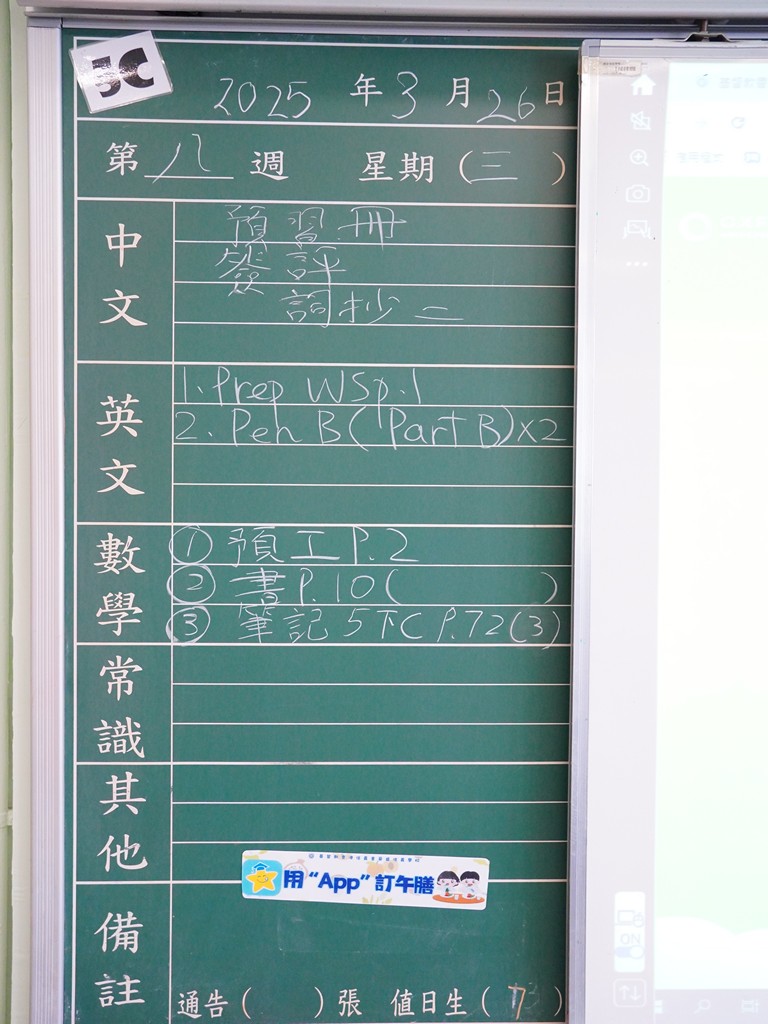 5C
2025 年 3 月 26 日
第 八 週 星期 (三)
中文
預習冊
簽評
詞抄二
英文
1. Prep WS p.1
2. Pen B (Part B) x2
數學
① 預工 P.2
② 書 P.10 ( )
③ 筆記 5下C P.72 (3)
常識
其他
用“App”訂午膳
備註
通告 ( ) 張 值日生 ( 7 )
ON